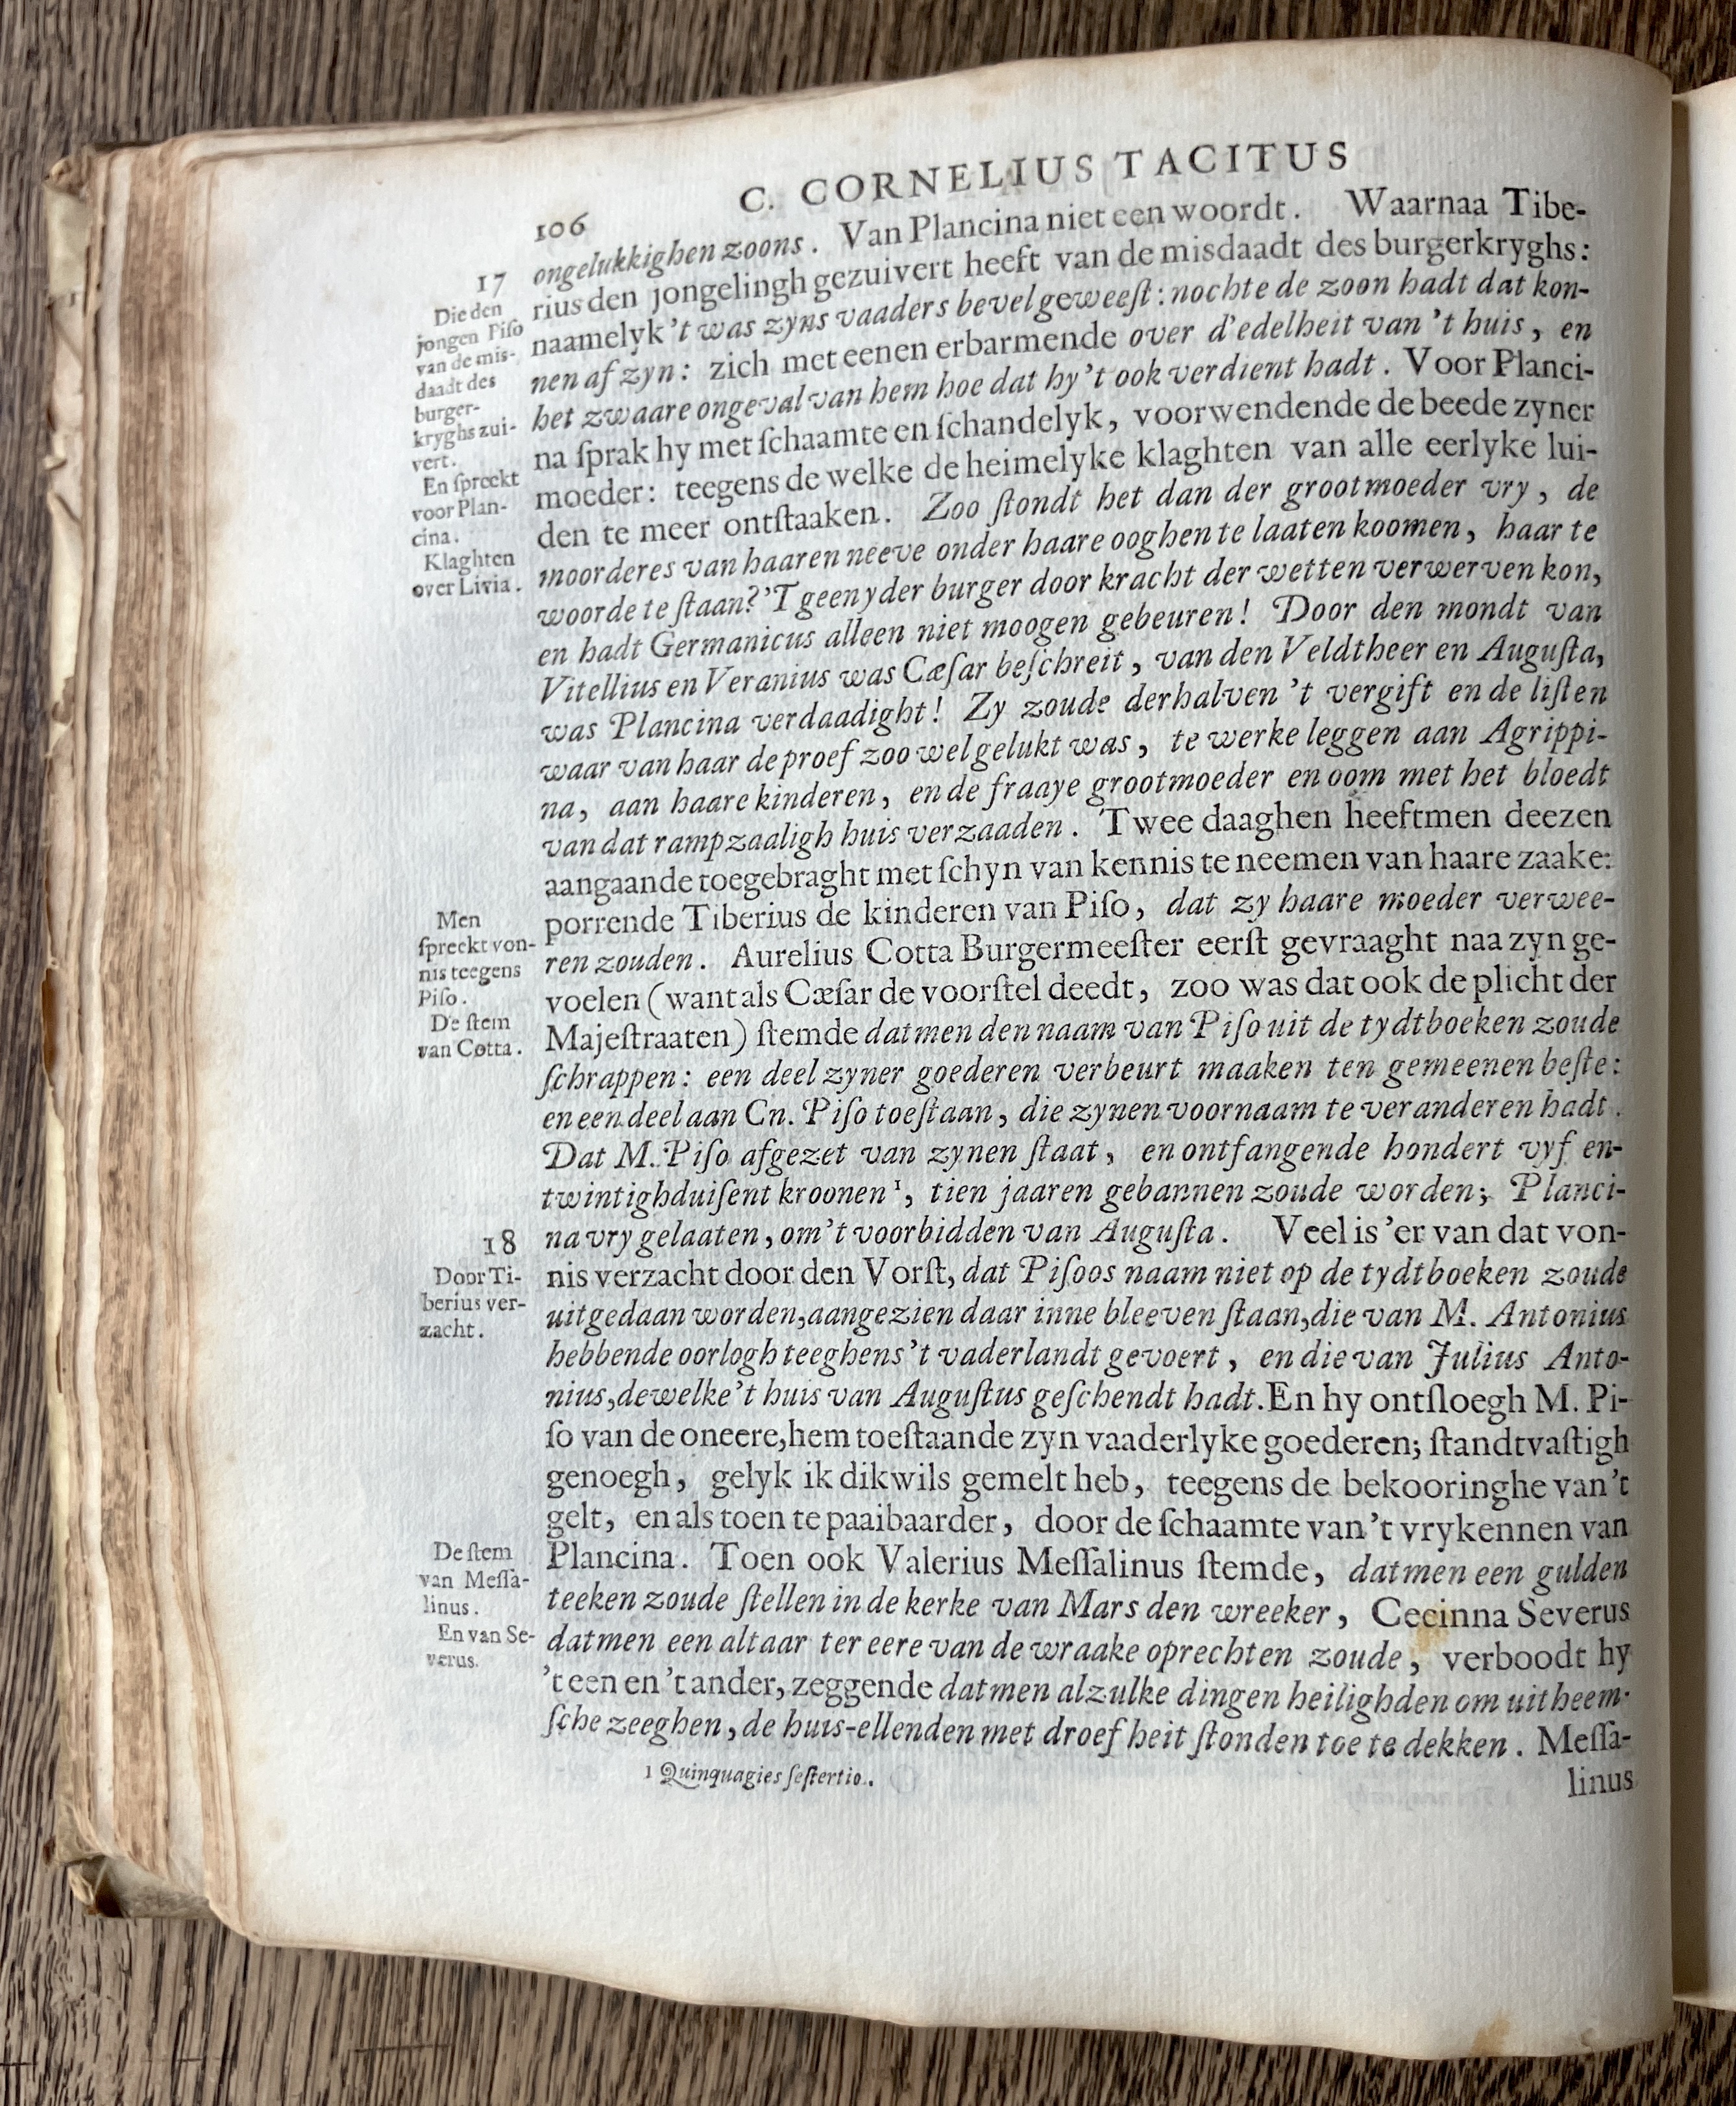 C. CORNELIUS TACITUS
106
ongelukkighen zoons. Van Plancina niet een woordt. Waarnaa Tibe-
rius den jongelingh gezuivert heeft van de misdaadt des burgerkryghs:
naamelyk 't was zyns vaaders bevel geweeſt: nochte de zoon hadt dat kon-
nen af zyn: zich met eenen erbarmende over d'edelheit van 't huis, en
het zwaare ongeval van hem hoe dat hy 't ook verdient hadt. Voor Planci-
na ſprak hy met ſchaamte en ſchandelyk, voorwendende de beede zyner
moeder: teegens de welke de heimelyke klaghten van alle eerlyke lui-
den te meer ontſtaaken. Zoo ſtondt het dan der grootmoeder vry, de
moorderes van haaren neeve onder haare ooghen te laaten koomen, haar te
woorde te ſtaan? 'T geen yder burger door kracht der wetten verwerven kon,
en hadt Germanicus alleen niet moogen gebeuren! Door den mondt van
Vitellius en Veranius was Cæſar beſchreit, van den Veldtheer en Auguſta,
was Plancina verdaadight! Zy zoude derhalven 't vergift en de liſten
waar van haar de proef zoo wel gelukt was, te werke leggen aan Agrippi-
na, aan haare kinderen, en de fraaye grootmoeder en oom met het bloedt
van dat rampzaaligh huis verzaaden. Twee daaghen heeftmen deezen
aangaande toegebraght met ſchyn van kennis te neemen van haare zaake:
porrende Tiberius de kinderen van Piſo, dat zy haare moeder verwee-
ren zouden. Aurelius Cotta Burgermeeſter eerſt gevraaght naa zyn ge-
voelen (want als Cæſar de voorſtel deedt, zoo was dat ook de plicht der
Majeſtraaten) ſtemde datmen den naam van Piſo uit de tydtboeken zoude
ſchrappen: een deel zyner goederen verbeurt maaken ten gemeenen beſte:
en een deel aan Cn. Piſo toeſtaan, die zynen voornaam te veranderen hadt.
Dat M. Piſo afgezet van zynen ſtaat, en ontfangende hondert vyf en-
twintighduiſent kroonen¹, tien jaaren gebannen zoude worden; Planci-
na vry gelaaten, om 't voorbidden van Auguſta. Veel is 'er van dat von-
nis verzacht door den Vorſt, dat Piſoos naam niet op de tydtboeken zoude
uitgedaan worden, aangezien daar inne bleeven ſtaan, die van M. Antonius
hebbende oorlogh teeghens 't vaderlandt gevoert, en die van Julius Anto-
nius, dewelke 't huis van Auguſtus geſchendt hadt. En hy ontſloegh M. Pi-
ſo van de oneere, hem toeſtaande zyn vaaderlyke goederen; ſtandtvaſtigh
genoegh, gelyk ik dikwils gemelt heb, teegens de bekooringhe van 't
gelt, en als toen te paaibaarder, door de ſchaamte van 't vrykennen van
Plancina. Toen ook Valerius Meſſalinus ſtemde, datmen een gulden
teeken zoude ſtellen in de kerke van Mars den wreeker, Cecinna Severus
datmen een altaar ter eere van de wraake oprechten zoude, verboodt hy
't een en 't ander, zeggende datmen alzulke dingen heilighden om uitheem-
ſche zeeghen, de huis-ellenden met droefheit ſtonden toe te dekken. Meſſa-
linus
1 Quinquagies ſeſtertio.
17
Die den
jongen Piſo
van de mis-
daadt des
burger-
kryghs zui-
vert.
En ſpreekt
voor Plan-
cina.
Klaghten
over Livia.
Men
ſpreekt von-
nis teegens
Piſo.
De ſtem
van Cotta.
18
Door Ti-
berius ver-
zacht.
De ſtem
van Meſſa-
linus.
En van Se-
verus.